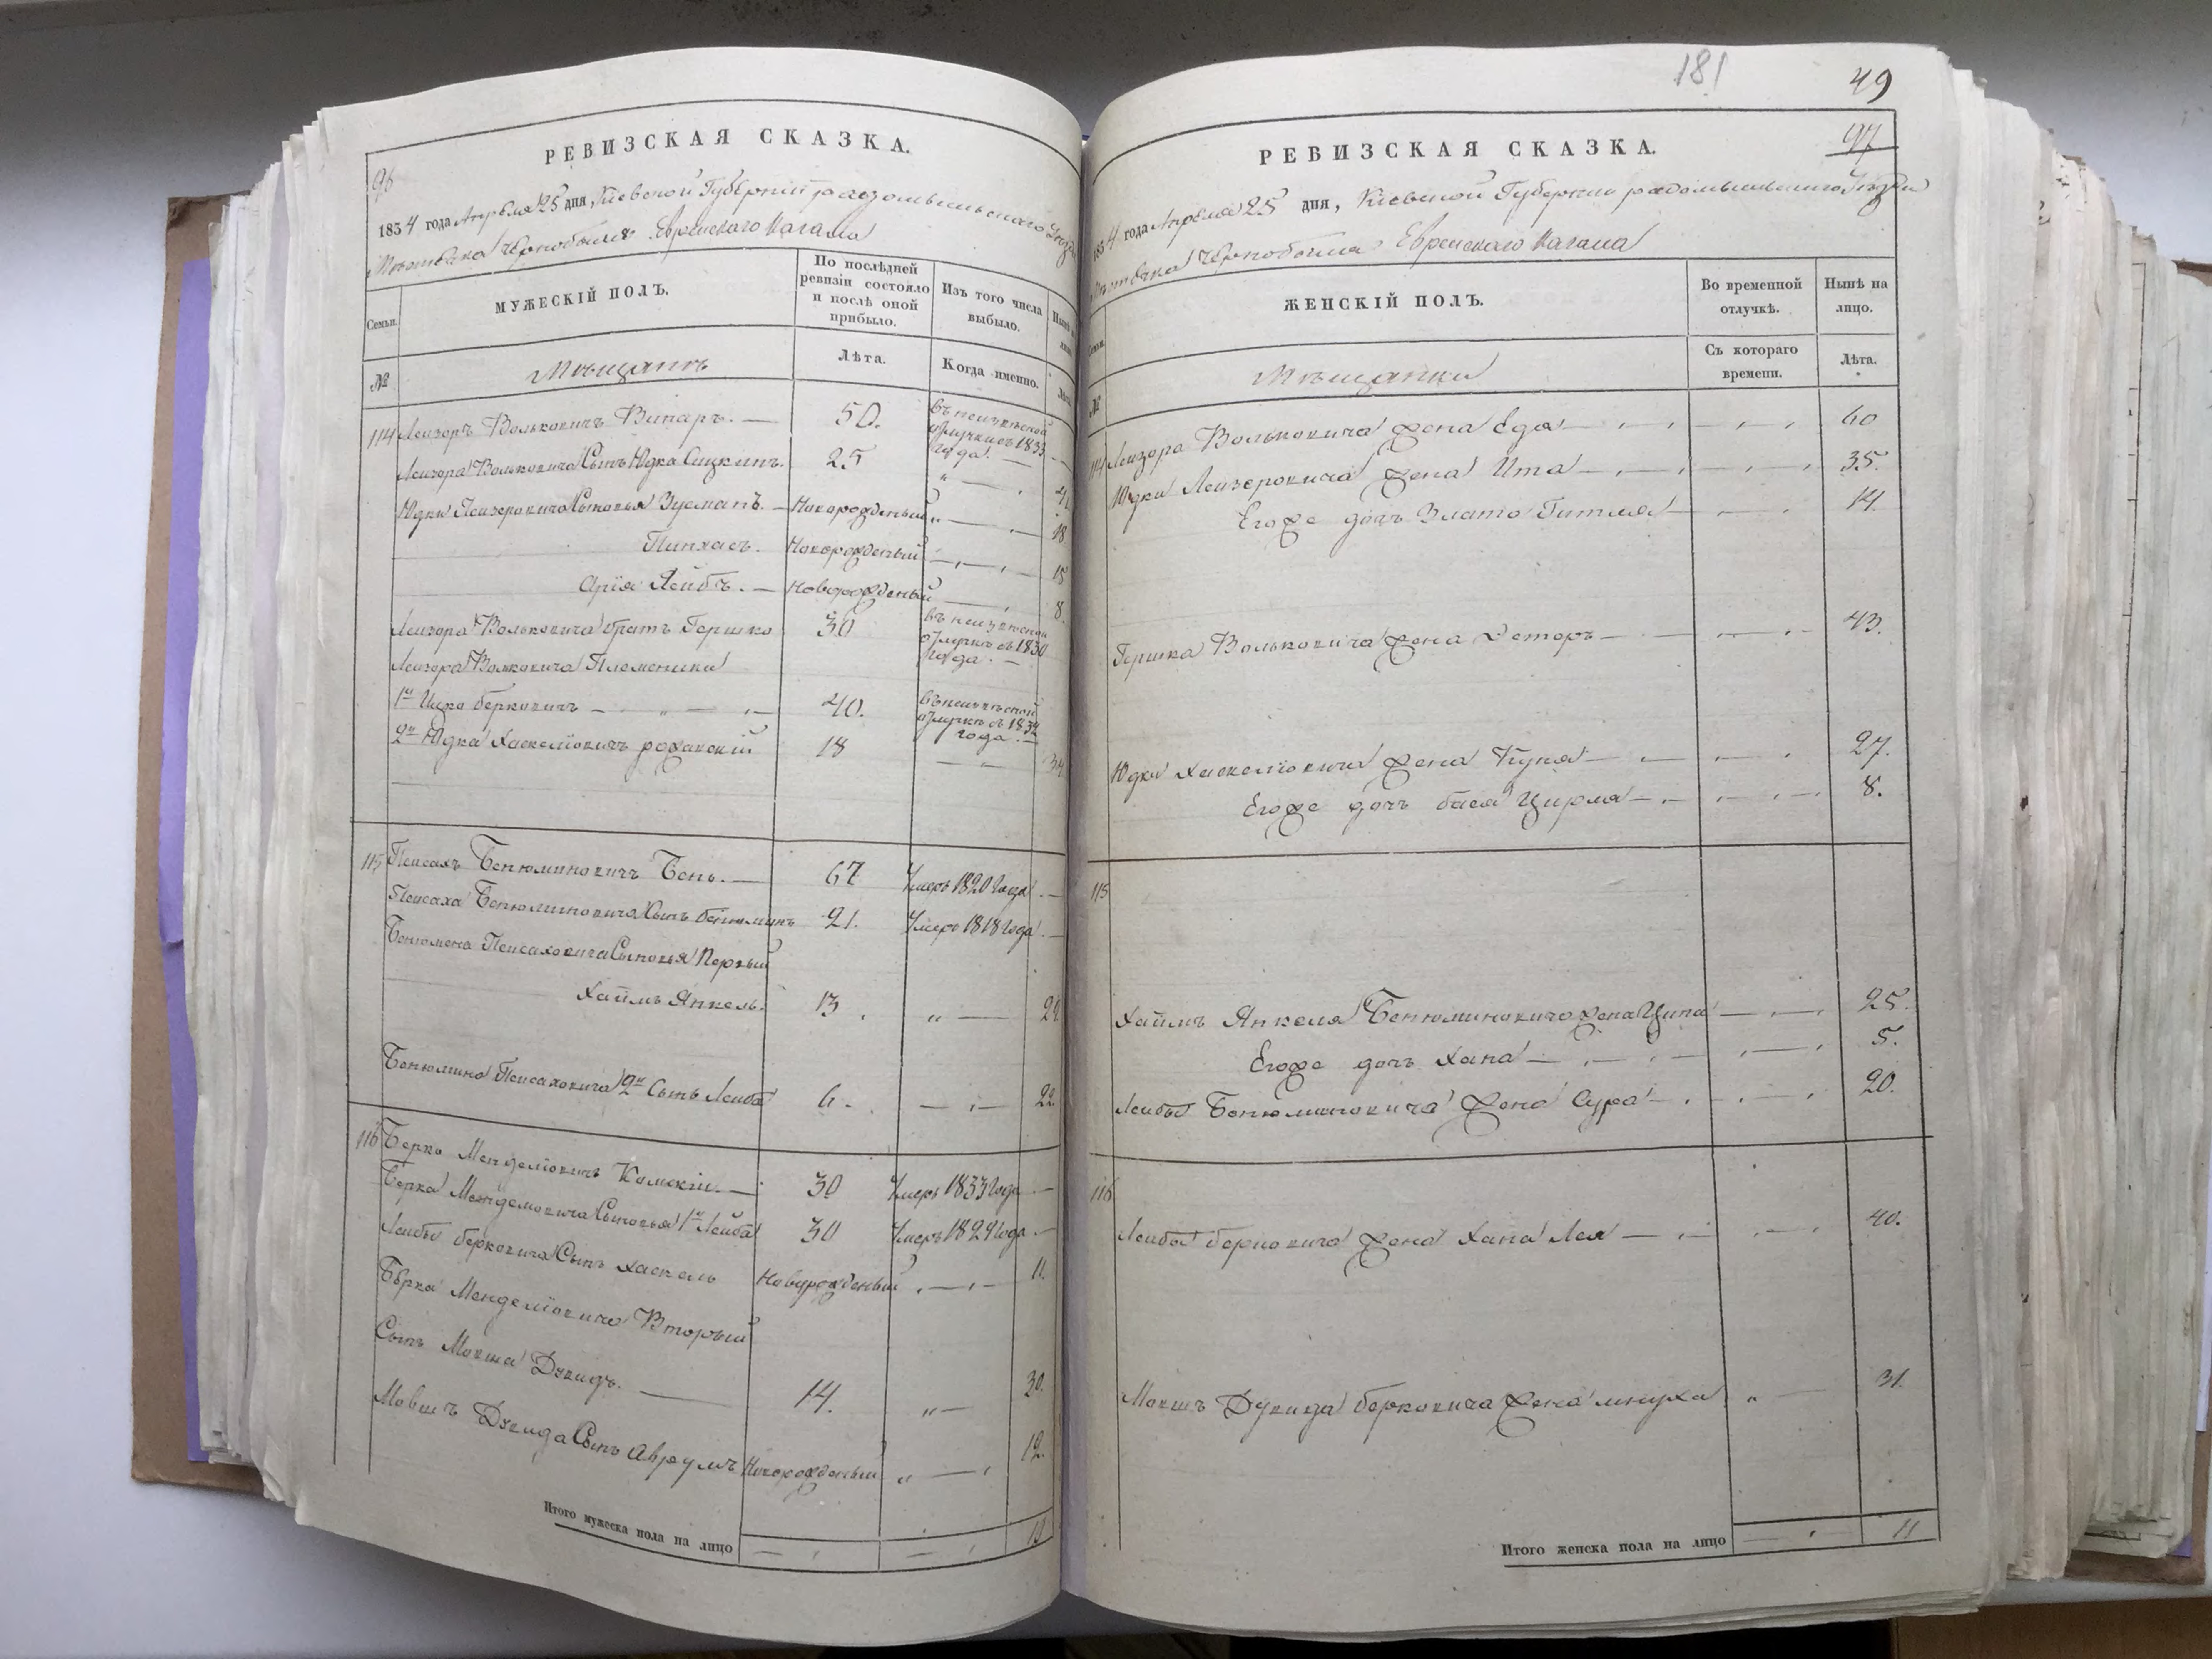 96
РЕВИЗСКАЯ СКАЗКА.
1834 года Апреля 25 дня, Кіевской Губерніи радомысльского Уезда
Мѣстечка Чернобыля Еврейскаго Кагала
Семьи.
МУЖЕСКІЙ ПОЛЪ.
По послѣдней ревизіи состояло и послѣ оной прибыло.
Изъ того числа выбыло.
№
Мѣщанъ
Лѣта.
Когда именно.
114 Лейзоръ Вольковичъ Винаръ. — 50. въ неизвѣстной отлучкѣ съ 1833 года. —
Лейзора Вольковича Сынъ Юдка 25 „ —
Юдки Лейзеровича Сыновья Зусманъ. — Новорожденый „ — 18
Пинхасъ. Новорожденый — 15
Арія Лейбъ. — Новорожденый — 8.
Лейзора Вольковича братъ Гершко 30 въ неизвѣстной отлучкѣ съ 1830 года. —
Лейзора Волковича Племеники
1й Ицко берковичъ — „ — 40. въ неизвѣстной отлучкѣ съ 1832 года. —
2й Юдка Хаскелювичъ 18 — 34
115 Пейсахъ Бенюминовичъ Бень. — 67 Умеръ 1820 года. —
Пейсаха Бенюминовича Сынъ бенюминъ 21. Умеръ 1818 года. —
Бенюмена Пейсаховича Сыновья Первый
Хаймъ Янкель. 13. „ — 29
Бенюмина Пейсаховича 2й Сынъ Лейба 6. — 22.
116 Берко Менделіовичъ — 30 Умеръ 1833 года. —
Берка Менделовича Сыновья 1й Лейба 30 Умеръ 1829 года. —
Лейбы берковича Сынъ Хаскель Новорожденый — 11.
Берка Менделіовича Вторый
Сынъ Мовша Дувидъ. — 14. „ — 30.
Мовшъ Дувида Сынъ Аврумъ Новорожденый „ — 12.
Итого мужеска пола на лицо
181
49
97
РЕВИЗСКАЯ СКАЗКА.
1834 года Апреля 25 дня, Кіевской Губерніи радомысльского Уезда
Мѣстечка Чернобыля Еврейскаго Кагала
ЖЕНСКІЙ ПОЛЪ.
Во временной отлучкѣ.
Нынѣ на лицо.
№
Мѣщанки
Съ котораго времени.
Лѣта.
114 Лейзора Вольковича жена Еда — 60
Юдки Лейзеровича жена Ита — 35.
Егоже дочъ Злата Гитля — 14.
Гершка Вольковича жена Эстеръ — 43.
Юдки Хаскелювича жена — 27.
Егоже дочъ бася Цирля — 8.
115
Хаймъ Янкеля Бенюминовича жена Ципа — 25.
Егоже дочъ Хана — 5.
Лейбы Бенюминовича жена Сура — 20.
116
Лейбы берковича жена Хана Лея — 40.
Мовшъ Дувида берковича жена мнуха „ — 31.
Итого женска пола на лицо — 11